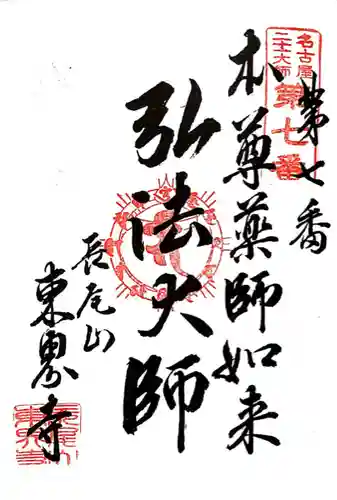 名古屋
二十一大師
第七番
第七番
本尊薬師如来
弘法大師
長尾山
東界寺